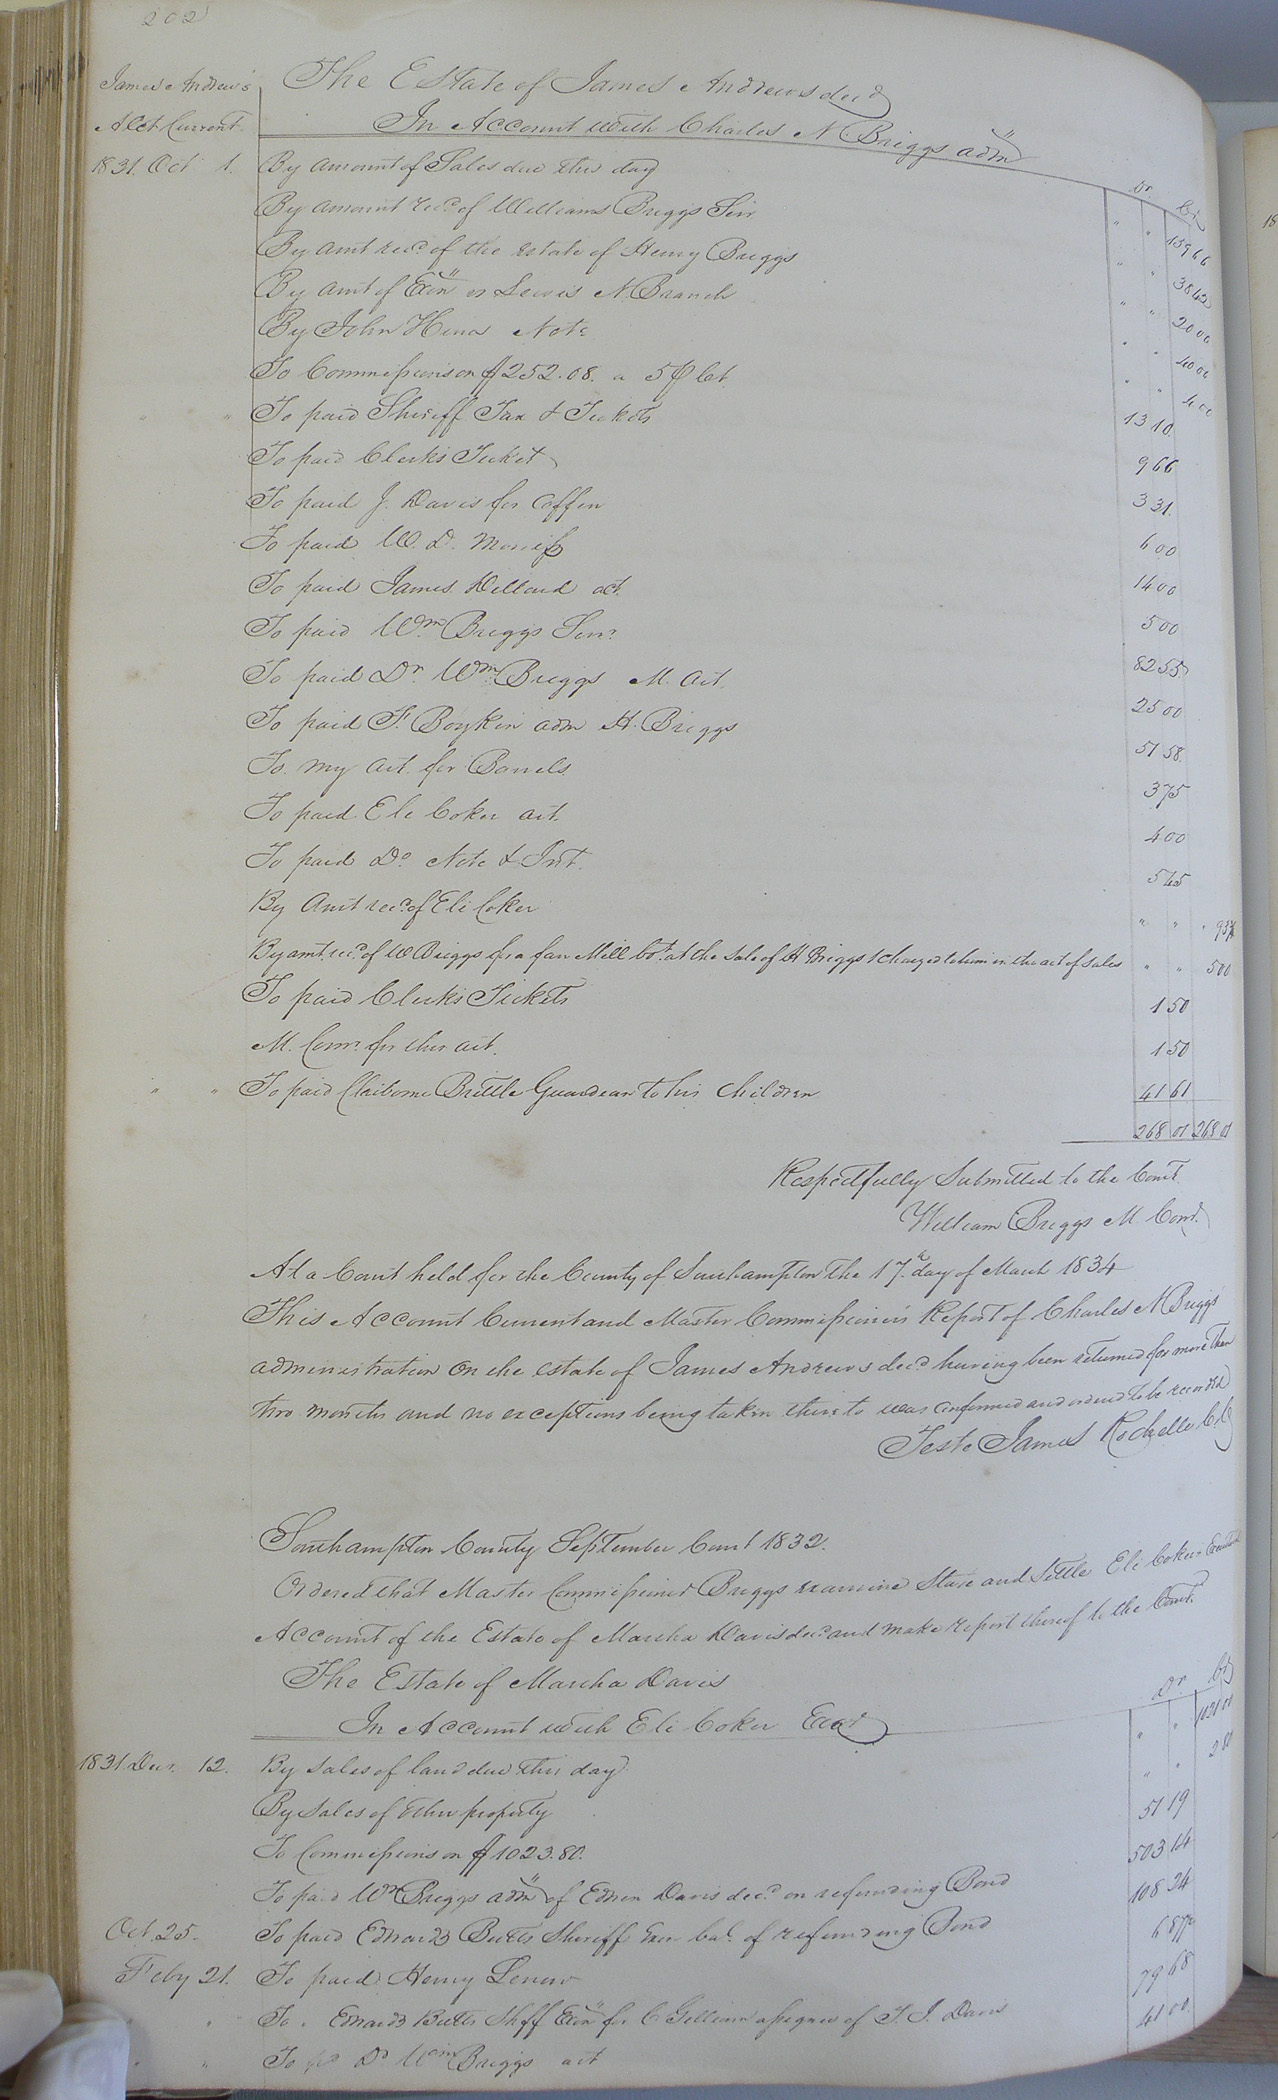 202
James Andrews
The Estate of James Andrews decd
Acct Current
In Account with Charles N. Briggs adm
Dr Cr
1831. Oct 1. By amount of Sales due this day " " 159 66
By amount recd of Williams Briggs Senr " " 38 42
By amt recd of the estate of Henry Briggs " " 20 00
By amt of Exn vs Lewis N. Branch " " 40 00
By John Note " " 4 00
To Commissions on $252.08. a 5 P Ct. 13 10
" " To paid Sheriff Tax & Tickets 9 66
To paid Clerks Ticket 3 31.
To paid J. Davis for Coffin 6 00
To paid W. D. 14 00
To paid James Dillard act. 5 00
To paid Wm Briggs Senr. 82 55
To paid Dr. Wm Briggs M. act. 25 00
To paid F. Boykin adm H. Briggs 51 58.
To my act. for Barrels 3 75
To paid Eli Coker act. 4 00
To paid Do. Note & Int. 5 45
By Amt recd of Eli Coker " " " 93¾
By amt. recd of W Briggs for a fan Mill bot. at the sale of H Briggs & charged to him in the act of sales " " 5 00
To paid Clerks Tickets 1 50
M. Comr. for this act. 1 50
" " To paid Claiborne Brittle Guardean to his children 41 61
268 01 268 01
Respectfully Submitted to the Court.
William Briggs M. Comr.
At a Court held for the County of Southampton the 17.th day of March 1834
This Account Current and Master Commissioner's Report of Charles N Briggs
administration on the estate of James Andrews decd having been returned for more than
two months and no exceptions being taken thereto was confirmed and ordered to be recorded
Teste James Rochelle C.C
Southampton County September Court 1832.
Ordered that Master Commissioner Briggs examine State and Settle Eli Coker's Executorl
Account of the Estate of Martha Davis decd and make report thereof to the Court.
The Estate of Martha Davis
Dr Cr
In Account with Eli Coker Exor
1831 Decr. 12. By sales of land due this day " " 1021 00
By Sales of other property " " 2 80
To Commissions on $1023.80. 51 19
To paid Wm Briggs adm of Edwin Davis decd on refunding Bond 503 44
Oct. 25. To paid Edwards Butts Sheriff Exn bal. of refunding Bond 108 24
Feby 21. To paid Henry Lenow 6 87½
" " To " Edwards Butts Shff Exn for C Gilliam assignee of T. J. Davis 79 68
" " To pd Dr Wm Briggs act 41 00.